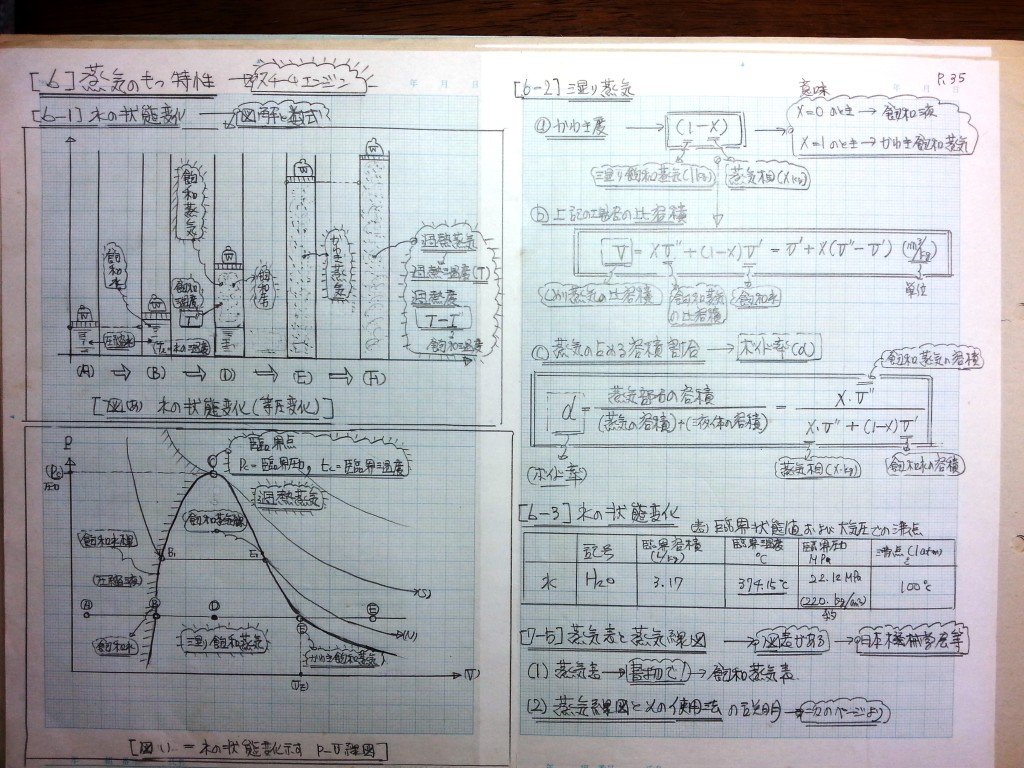 [6] 蒸気のもつ特性 スチームエンジン
[6-1] 水の状態変化 → 図解と数式
飽和蒸気
飽和水
飽和温度
T
かわき蒸気
過熱蒸気
過熱温度(T)
過熱度
飽和温度
圧縮水
(A) ⇒ (B) ⇒ (D) ⇒ (E) ⇒ (F)
水の状態変化(等圧変化)
P
(Pc)
圧力
臨界点
Pc=臨界圧力, tc=臨界温度
過熱蒸気
飽和蒸気線
飽和水線
(圧縮液)
B₁
E₁
A
B
D
E
F
飽和水
湿り飽和蒸気
かわき飽和蒸気
(V)
水の状態変化示す P-V線図]
P.35
[6-2] 湿り蒸気
意味
ⓐ かわき度 → (1-X)
X=0 のとき → 飽和液
X=1のとき → かわき飽和蒸気
湿り飽和蒸気(1kg)
蒸気相(Xkg)
ⓑ 上記の場合の比容積
V = XV"+(1-X)V' = V'+X(V"-V') (m³/kg)
単位
しめり蒸気の比容積
飽和蒸気の比容積
飽和水
ⓒ 蒸気の占める容積割合 → ボイド率(α)
飽和蒸気の容積
α = 蒸気部分の容積 / (蒸気の容積)+(液体の容積) = X・V" / X・V"+(1-X)V'
(ボイド率)
蒸気相(X・kg)
飽和水の容積
[6-3] 水の状態変化
(表) 臨界状態値および大気圧での沸点
記号 臨界容積 臨界温度 ℃ 臨界圧力 MPa 沸点 (1atm) ℃
水 H₂O 3.17 374.15℃ 22.12MPa 100℃
[7-5] 蒸気表と蒸気線図 → 図表がある → 日本機械学会等
(1) 蒸気表 → 書物で! → 飽和蒸気表
(2) 蒸気線図とその使用法の説明 → 次のページより